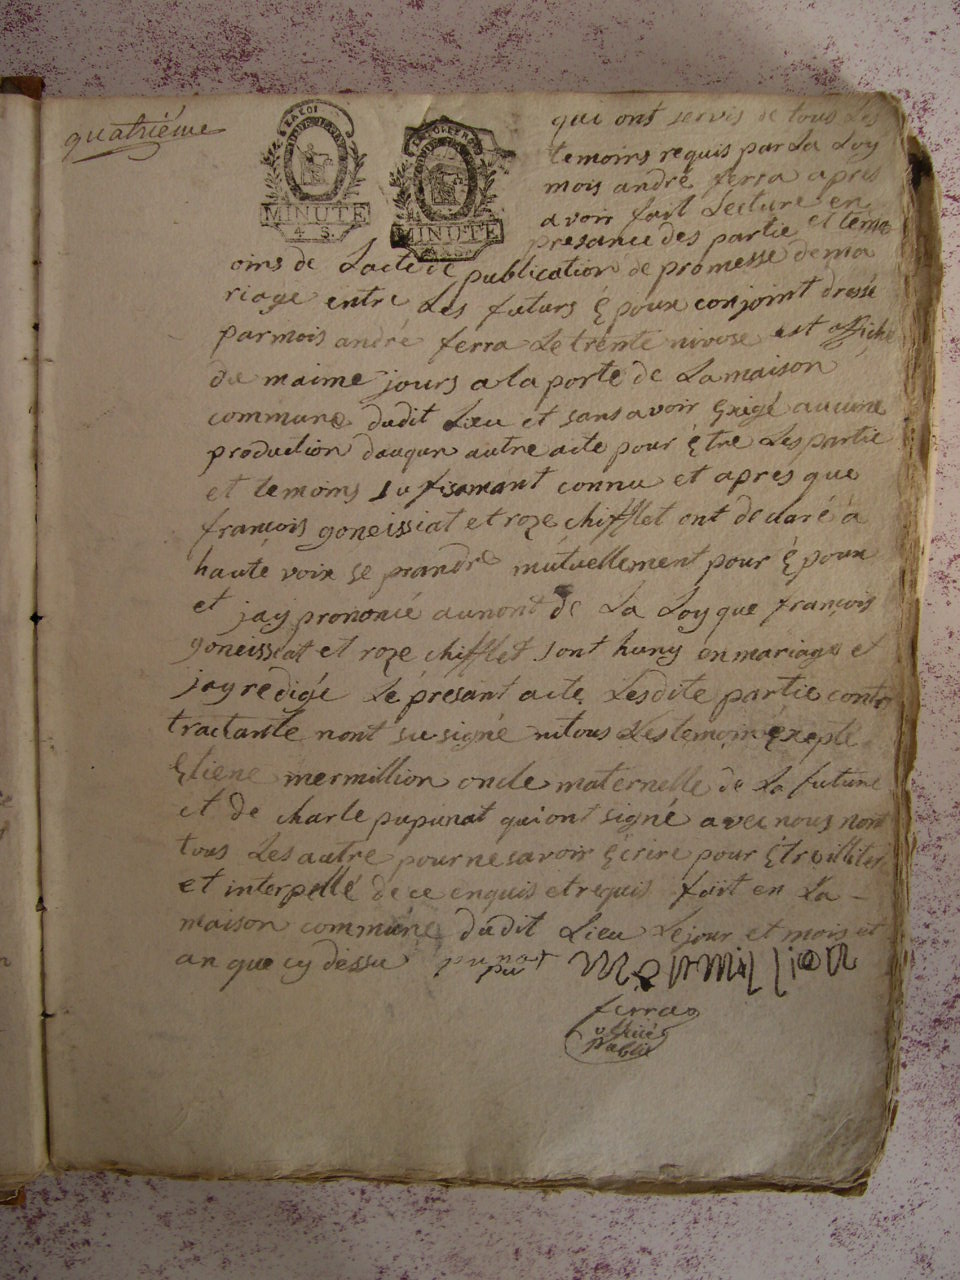 quatriéme
LA LOI
MINUTE
4 S.
MINUTE
qui ont servis de tous Les
temoins requis par La Loy
mois andré ferra apres
avoir fait Lecture en
presance des partie et temo
oins de Lacte de publication de promesse de ma
riage entre Les futurs époux conjoint dressé
par mois andré ferra Le trente nivose est affiché
du maime jours a la porte de La maison
commune dudit Lieu et sans avoir éxigé aucune
production dauqun autre acte pour étre Les partie
et temoins sufisamant connu et apres que
francois goneissiat et roze chifflet ont declaré á
haute voix se prandre mutuellement pour époux
et jay prononcé aunont de La Loy que francois
goneissiat et roze chifflet sont huny en mariage et
jay redigé Le présant acte Lesdite partie contr
tractante nont su signé ni tous Les temoin éxepté
étiene mermillion oncle maternelle de La future
et de charle pupunat qui ont signé avec nous nont
tous Les autre pour ne savoir écrire pour étre illiteré
et interpellé de ce enquis et requis fait en La
maison commune dudit Lieu Le jour et mois et
an que cy dessu
pu punat
ferra
officié
public